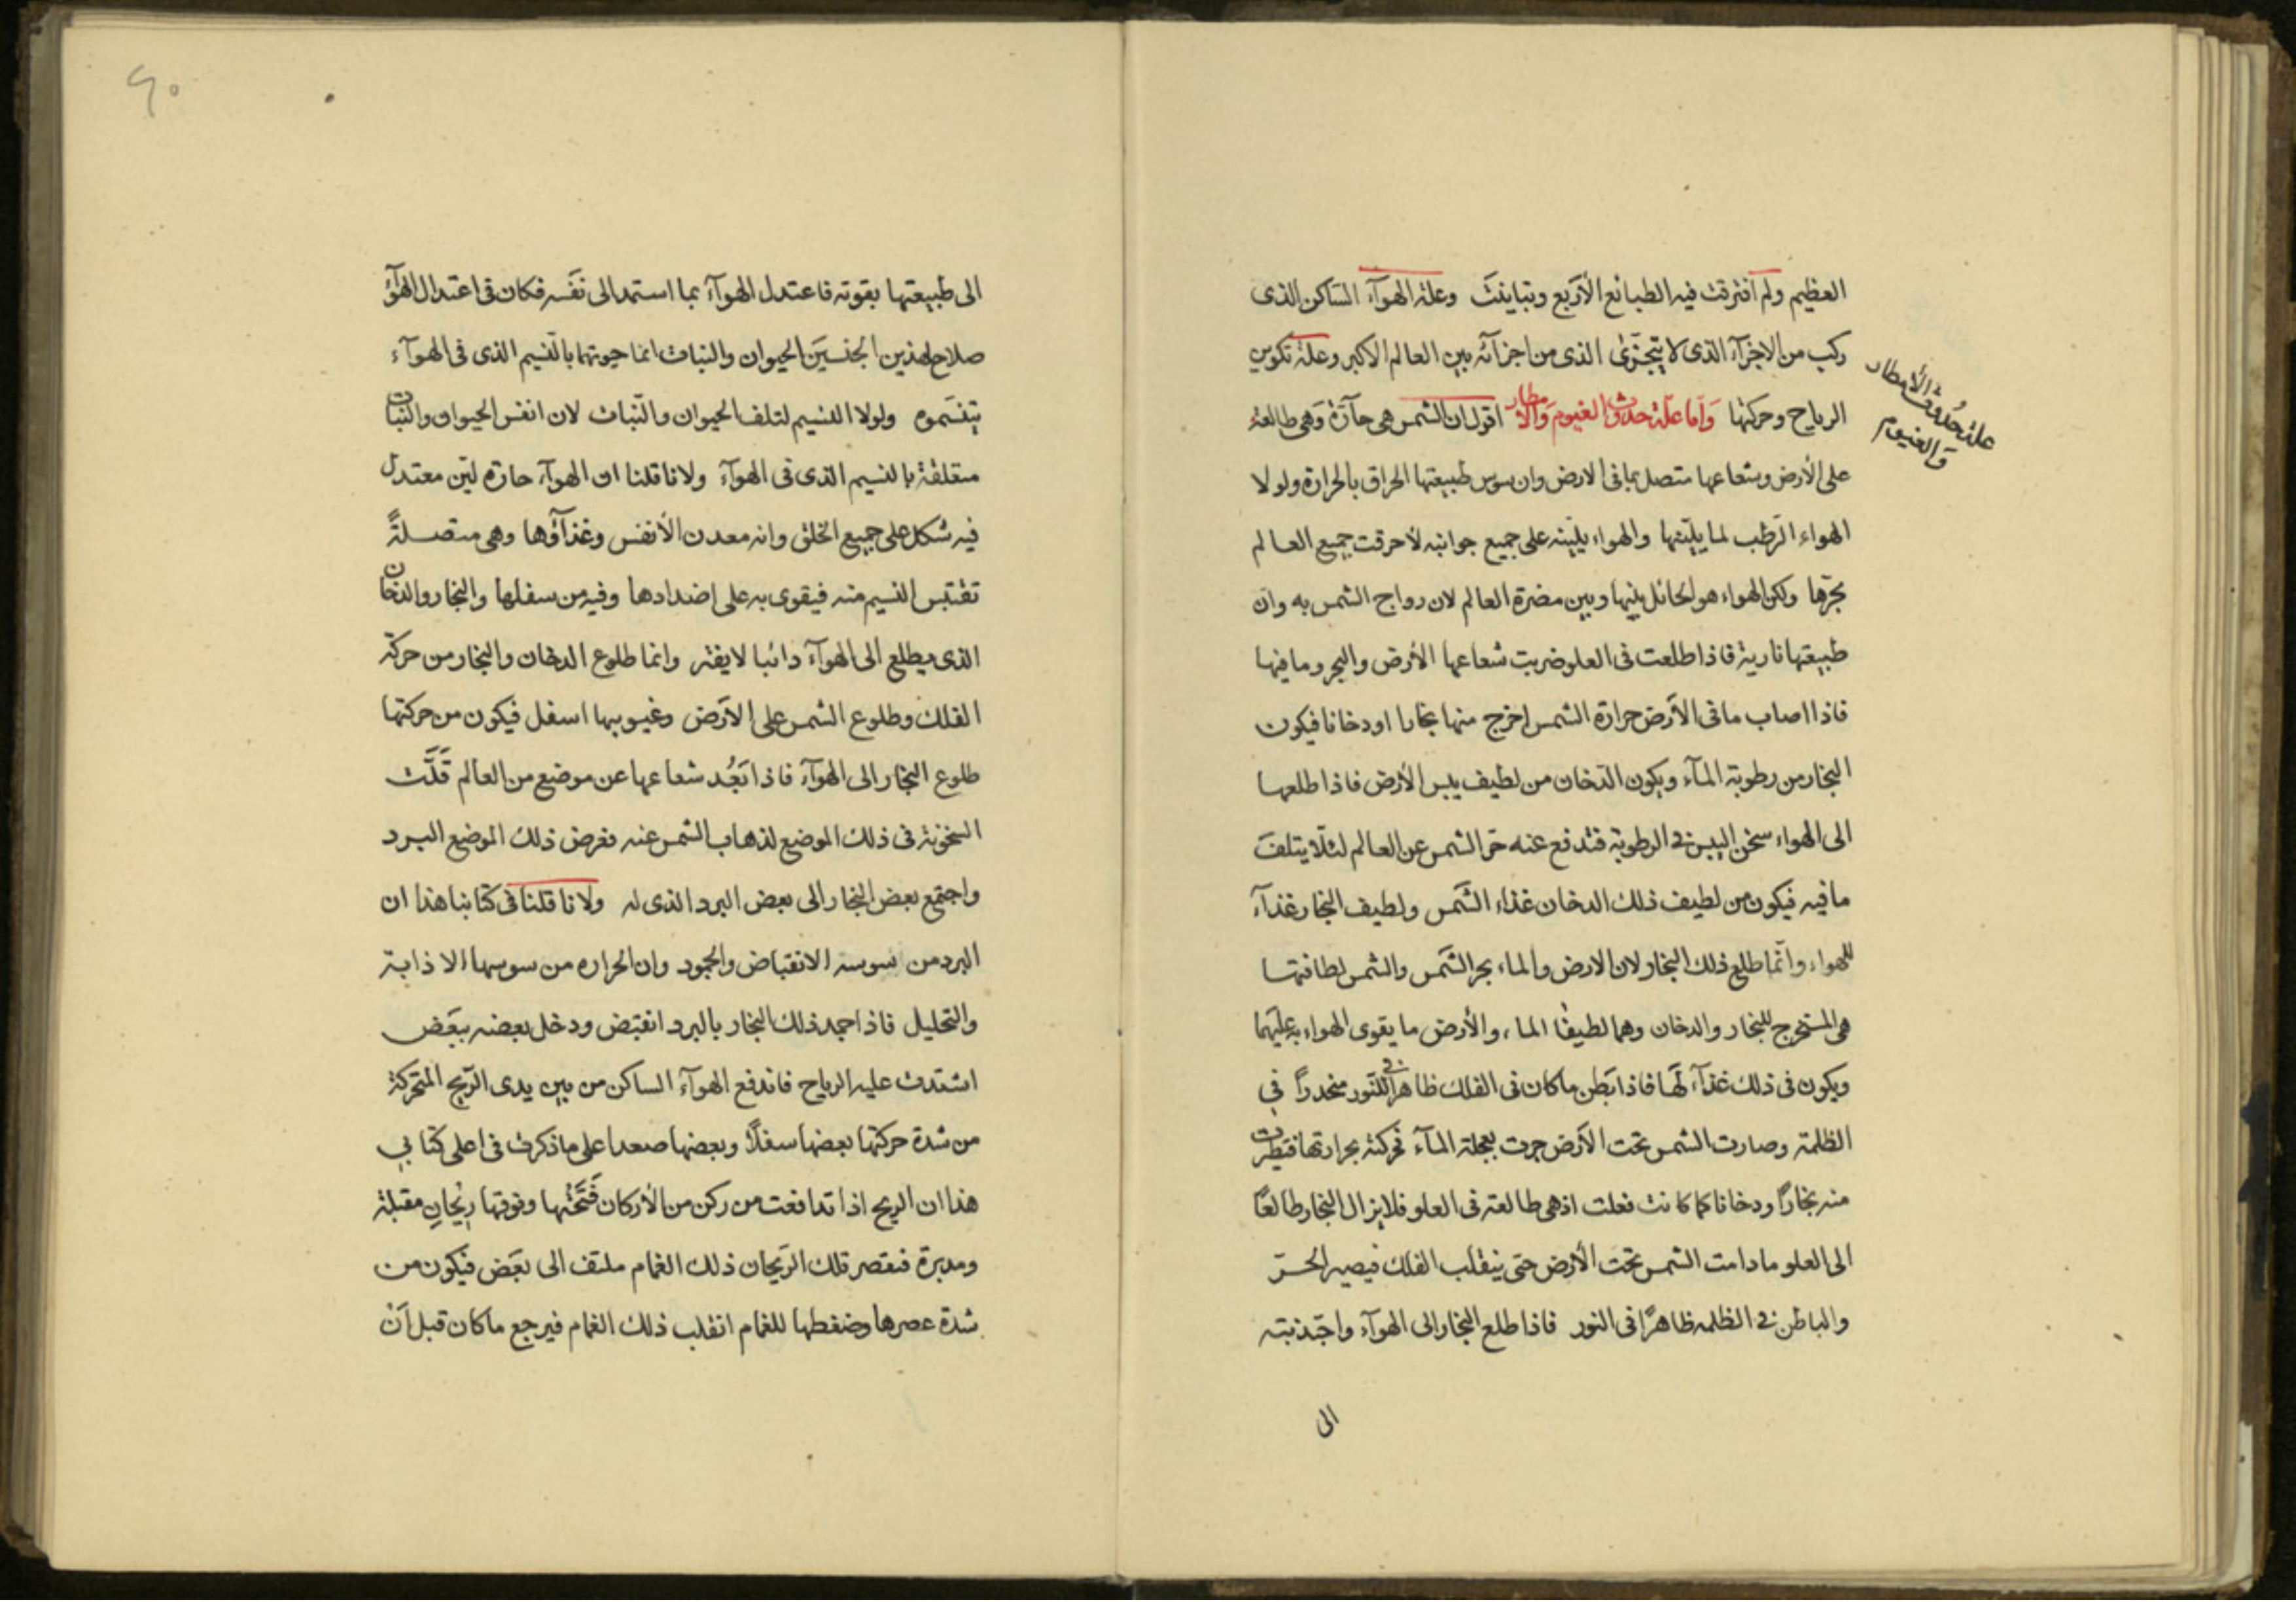 العظيم ولم افترقت فيه الطبائع الأربع وتباينت وعلة الهوآء الساكن الذى
ركب من الاجزآء الذى لا يتجزى الذى من اجزآئه بين العالم الاكبر وعلة تكوين
الرياح وحركتها وأما علة حدوث الغيوم والأمطار اقول ان الشمس هى حآرة وهى طالعة
علة حدوث الأمطار
والغيوم
على الأرض وشعاعها متصل بما فى الارض وان سوس طبيعتها الحراق بالحرارة ولو لا
الهواء الرطب لما يليها والهواء يليه على جميع جوانبه لأحرقت جميع العالم
بحرها ولكن الهواء هو الحائل بينها وبين مضرة العالم لان رواح الشمس به وان
طبيعتها نارية فاذا طلعت فى العلو ضربت شعاعها الأرض والبحر وما فيها
فاذا اصاب ما فى الأرض حرارة الشمس اخرج منها بخارا او دخانا فيكون
البخار من رطوبة المآء ويكون الدخان من لطيف يبس الأرض فاذا طلعها
الى الهواء سخن اليبس فى الرطوبة فتدفع عنه حر الشمس عن العالم لئلا يتلف
ما فيه فيكون من لطيف ذلك الدخان غذاء الشمس ولطيف البخار غذآء
للهواء وانما طلع ذلك البخار لان الارض والماء بحر الشمس والشمس لطافتها
هى المستخرج للبخار والدخان وهما لطيفا الماء والأرض ما يقوى الهواء به عليهما
ويكون فى ذلك غذآء لها فاذا بطن ما كان فى الفلك ظاهرا فى النور منحدرا فى
الظلمة وصارت الشمس تحت الأرض جرت بعجلة المآء فحركته بحرارتها فتطيرت
منه بخارا ودخانا كما كانت فعلت اذ هى طالعة فى العلو فلا يزال البخار طالعا
الى العلو ما دامت الشمس تحت الأرض حتى ينقلب الفلك فيصير الحر
والباطن فى الظلمه ظاهرا فى النور فاذا طلع البخار الى الهوآء واجتذبته
الى
٩٠
الى طبيعتها بقوته فاعتدل الهوآء بما استمد الى نفسه فكان فى اعتدال الهوآء
صلاح لهذين الجنسين الحيوان والنبات انما حيوتهما بالنسيم الذى فى الهوآء
يتنسموه ولولا النسيم لتلف الحيوان والنبات لان انفس الحيوان والنبات
متعلقة بالنسيم الذى فى الهوآء ولانا قلنا ان الهوآء حاره لين معتدل
فيه شكل على جميع الخلق وانه معدن الأنفس وغذآؤها وهى متصلة
تقتبس النسيم منه فيقوى به على اضدادها وفيه من سفلها والبخار والدخان
الذى يطلع الى الهوآء دائبا لا يفتر وانما طلوع الدخان والبخار من حركة
الفلك وطلوع الشمس على الارض وغيوبها اسفل فيكون من حركتها
طلوع البخار الى الهوآء فاذا بعد شعاعها عن موضع من العالم قلت
السخونة فى ذلك الموضع لذهاب الشمس عنه فعرض ذلك الموضع البرد
واجتمع بعض البخار الى بعض البرد الذى له ولانا قلنا فى كتابنا هذا ان
البرد من سوسه الانقباض والجمود وان الحراره من سوسها الاذابة
والتحليل فاذا جمد ذلك البخار بالبرد انقبض ودخل بعضه ببعض
اشتدت عليه الرياح فاندفع الهوآء الساكن من بين يدى الريح المتحركة
من شدة حركتها بعضها سفلا وبعضها صعدا على ما ذكرت فى اعلى كتابى
هذا ان الريح اذا تدافعت من ركن من الأركان فتحتها وفوقها ريحان مقبلة
ومدبرة فتعصر تلك الريحان ذلك الغمام ملتف الى بعض فيكون من
شدة عصرها وضغطها للغمام انقلب ذلك الغمام فيرجع ما كان قبل ان